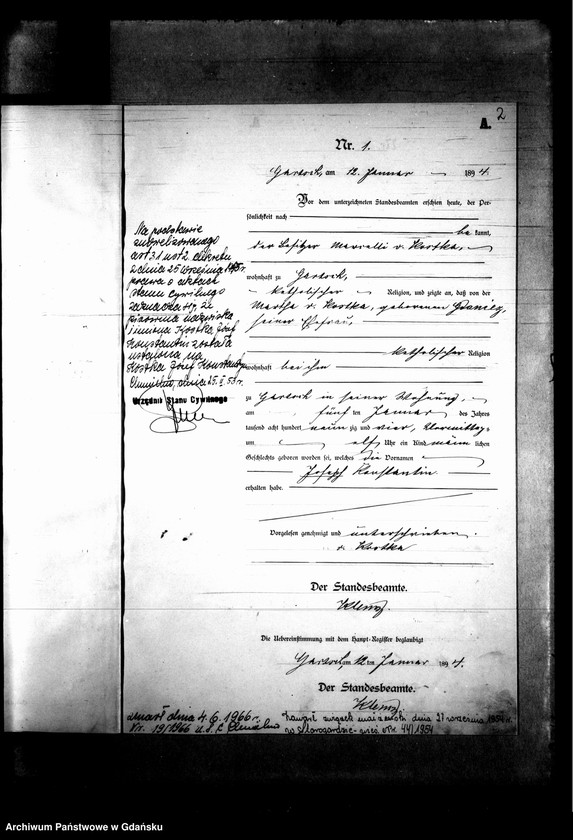 2
A.
Nr. 1.
am 12. Januar 1894.
Vor dem unterzeichneten Standesbeamten erschien heute, der Per-
sönlichkeit nach
be kannt,
der Besitzer v. Kostka,
wohnhaft zu
katholischer Religion, und zeigte an, daß von der
Martha v. Kostka, geborenen
seiner Ehefrau,
katholischer Religion
wohnhaft bei ihm
zu in seiner Wohnung,
am fünften Januar des Jahres
tausend acht hundert neunzig und vier, Vormittags
um elf Uhr ein Kind männ lichen
Geschlechts geboren worden sei, welches die Vornamen
Joseph Konstantin
erhalten habe.
Vorgelesen, genehmigt und unterschrieben.
v. Kostka
Der Standesbeamte.
Die Uebereinstimmung mit dem Haupt-Register beglaubigt
am 12 ten Januar 1894.
Der Standesbeamte.
Na podstawie
znowelizowanego
art. 31 ust 2. dekretu
z dnia 25 września 1945 r
prawo o aktach
stanu cywilnego
zaznacza się, że
pisownia nazwiska
i imiona Kostka Józef
Konstantin została
ustalona na
Kostka Józef Konstanty
Chmielno, dnia 25. 53 r.
Urzędnik Stanu Cywilnego
zmarł dnia 4.6.1966 r.
Nr. 19/1966 u.s.c Chmielno
zawarł związek małżeński dnia 27 września 1954 r.
w Starogardzie - Nr. 44/1954
Archiwum Państwowe w Gdańsku